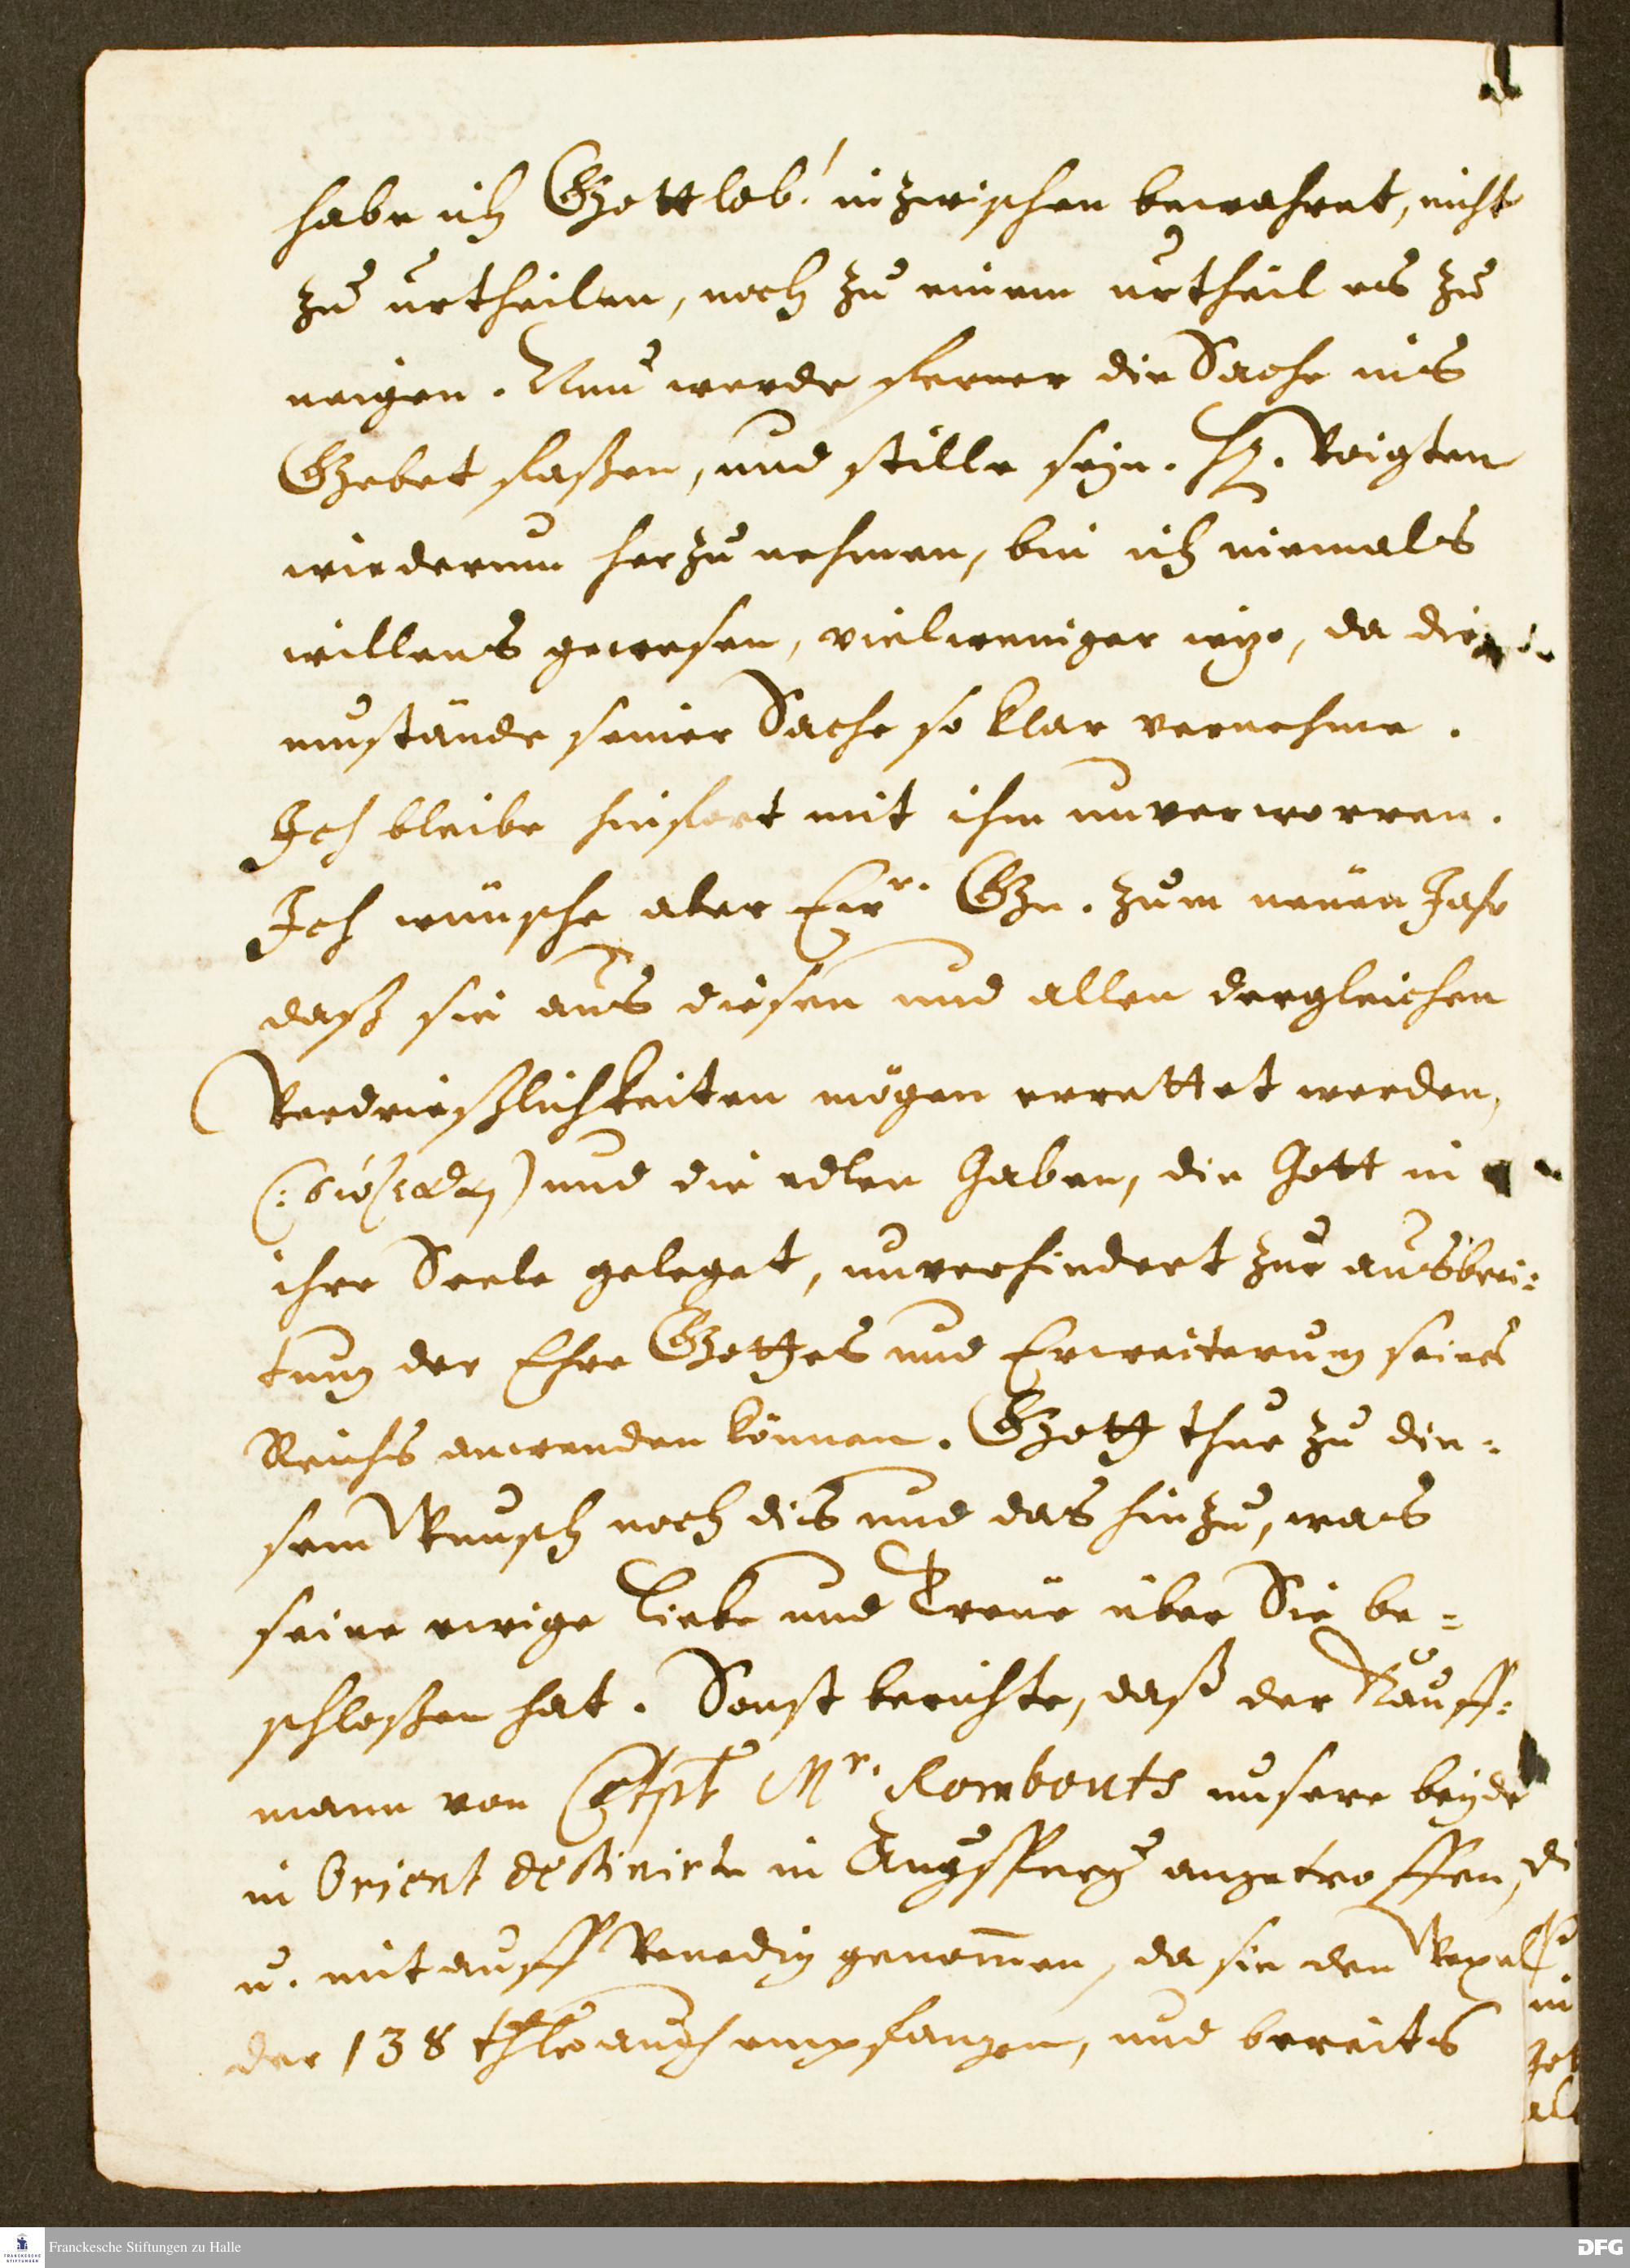 habe ich GOttlob! inzwischen bewahret, nicht
zu urtheilen, noch zu einem urtheil es zu
neigen. Nun werde ferner die Sache ins
GEbet faßen, und stille seyn. H. Voigten
wiederum herzu nehmen, bin ich niemals
willens gewesen, vielweniger itzo, da die
umstände seiner Sache so klar vernehme.
Ich bleibe hinfort mit ihm unverworren.
Ich wünsche aber Ewr. GHn. zum neüen Jahr
daß sie aus diesen und allen dergleichen
Verdrießlichkeiten mögen errettet werden,
und die edlen Gaben, die Gott in
ihre Seele geleget, unverhindert zur ausbrei-
tung der Ehre GOttes und Erweiterung seines
Reichs anwenden können. GOtt thue zu die-
sem Wunsch noch dis und das hinzu, was
seine ewige Liebe und Treüe über Sie be-
schloßen hat. Sonst berichte, daß der Kauff-
mann von Cstpl Mr. Rombouts unsere beyde
in Orient destinirte in Augspurg angetroffen,
u. mit auff Venedig genom̄en, da sie den Wexel
der 138 thlr auch empfangen, und bereits
Franckesche Stiftungen zu Halle
DFG